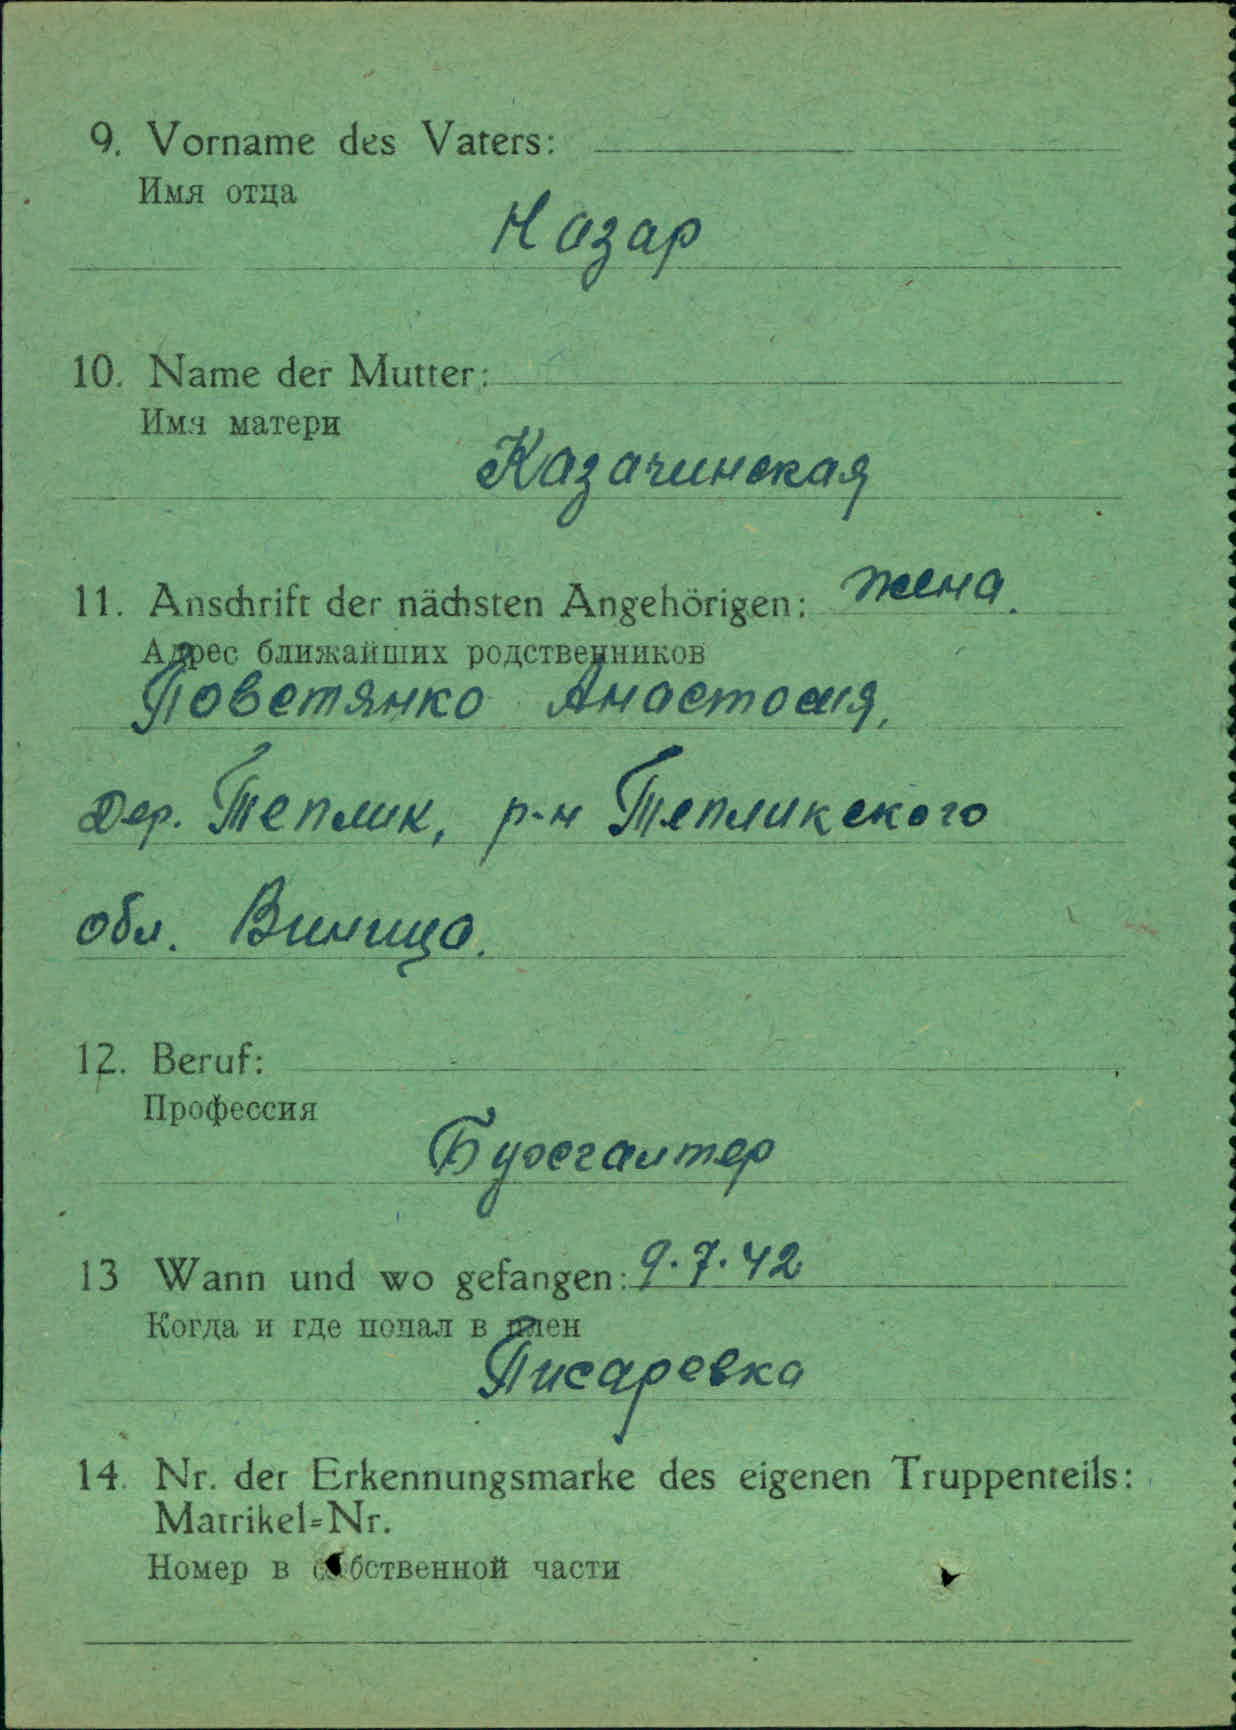 9. Vorname des Vaters:
Имя отца
Назар
10. Name der Mutter:
Имя матери
Казачинская
11. Anschrift der nächsten Angehörigen: жена.
Адрес ближайших родственников
Поветянко Анастасия,
дер. Теплик, р-н Тепликского
обл. Виница.
12. Beruf:
Профессия
Бухгалтер
13 Wann und wo gefangen: 9.7.42
Когда и где попал в плен
Писаревка
14. Nr. der Erkennungsmarke des eigenen Truppenteils:
Matrikel=Nr.
Номер в собственной части